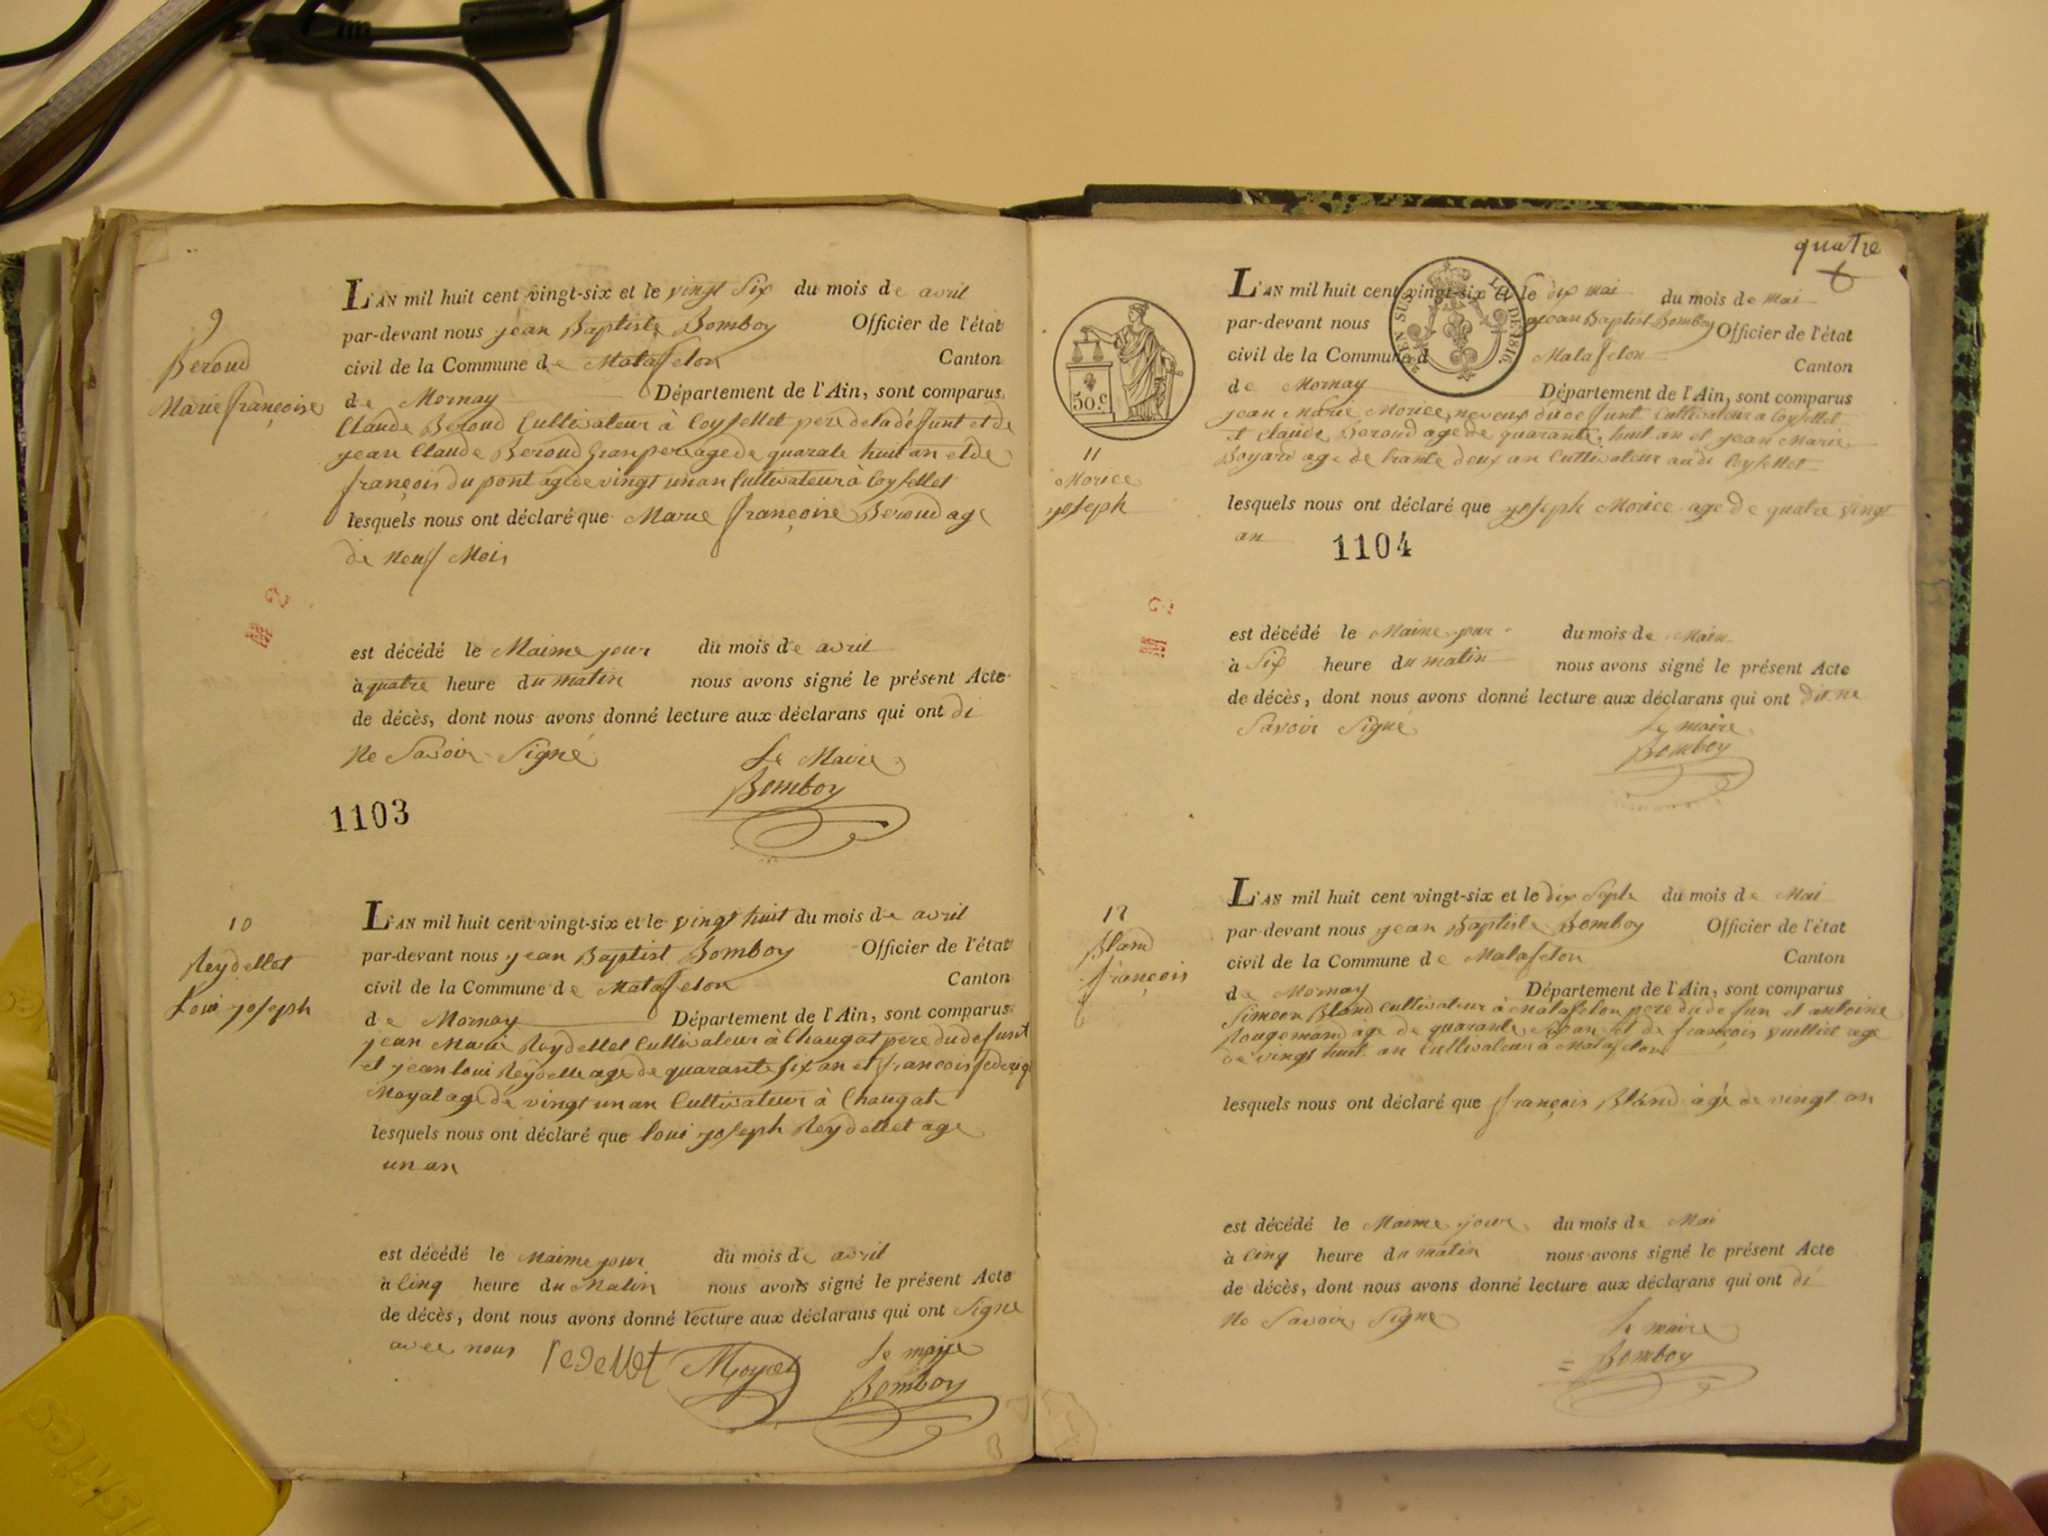 9
Beroud
Marie françoise
L'AN mil huit cent vingt-six et le vingt Six du mois de avril
par-devant nous jean Baptiste Bomboy Officier de l'état
civil de la Commune de Matafelon Canton
de Mornay Département de l'Ain, sont comparus
Claude Beroud Cultivateur à Coyselet pere de la défunt et de
jean Claude Beroud Granpere age de quarate huit an et de
françois du pont age de vingt un an Cultivateur à Coysellet
lesquels nous ont déclaré que Marie françoise Beroud age
de neuf Mois
est décédé le Maime jour du mois de avril
à quatre heure du matin nous avons signé le présent Acte
de décès, dont nous avons donné lecture aux déclarans qui ont di
Ne Savoir Signé Le Maire
Bomboy
1103
10
Reydellet
Loui joseph
L'AN mil huit cent vingt-six et le vingt huit du mois de avril
par-devant nous jean Baptist Bomboy Officier de l'état
civil de la Commune de Matafelon Canton
de Mornay Département de l'Ain, sont comparus
jean Marie Reydellet Cultivateur à Chougat pere du defunt
et jean loui Reydelle age de quarante six an et francois
Moyat age de vingt un an Cultivateur à Chougat
lesquels nous ont déclaré que loui joseph Reydellet age
un an
est décédé le Maime jour du mois de avril
à Cinq heure du Matin nous avons signé le présent Acte
de décès, dont nous avons donné lecture aux déclarans qui ont Signe
avec nous redellet Moyat Le maire
Bomboy
quatre
50.c
LOI DE 1816.
11
Morice
joseph
L'AN mil huit cent vingt-six et le dix mai du mois de mai
par-devant nous jean Baptist Bomboy Officier de l'état
civil de la Commune d Matafelon Canton
de Mornay Département de l'Ain, sont comparus
jean Marie Morice, neveux du defunt Cultivateur a Coysellet
et Claude Beroud age de quarante huit an et jean Marie
Boyard age de trante deux an Cultivateur audi Coysellet
lesquels nous ont déclaré que joseph Morice age de quatre vingt
an
1104
est décédé le Maime jour du mois de Main
à Six heure du matin nous avons signé le présent Acte
de décès, dont nous avons donné lecture aux déclarans qui ont dit ne
Savoir Signé Le maire
Bomboy
12
Bland
françois
L'AN mil huit cent vingt-six et le dix Septe du mois de Mai
par-devant nous jean Baptiste Bomboy Officier de l'état
civil de la Commune de Matafelon Canton
de Mornay Département de l'Ain, sont comparus
Simeon Bland Cultivateur à Matafelon pere du defun et antoine
Rougemand age de quarante an et de françois vuilliet age
de vingt huit an Cultivateur à Matafelon
lesquels nous ont déclaré que françois Bland agé de vingt an
est décédé le Maime jour du mois de Mai
à Cinq heure du matin nous avons signé le présent Acte
de décès, dont nous avons donné lecture aux déclarans qui ont di
Ne Savoir Signe Le maire
Bomboy